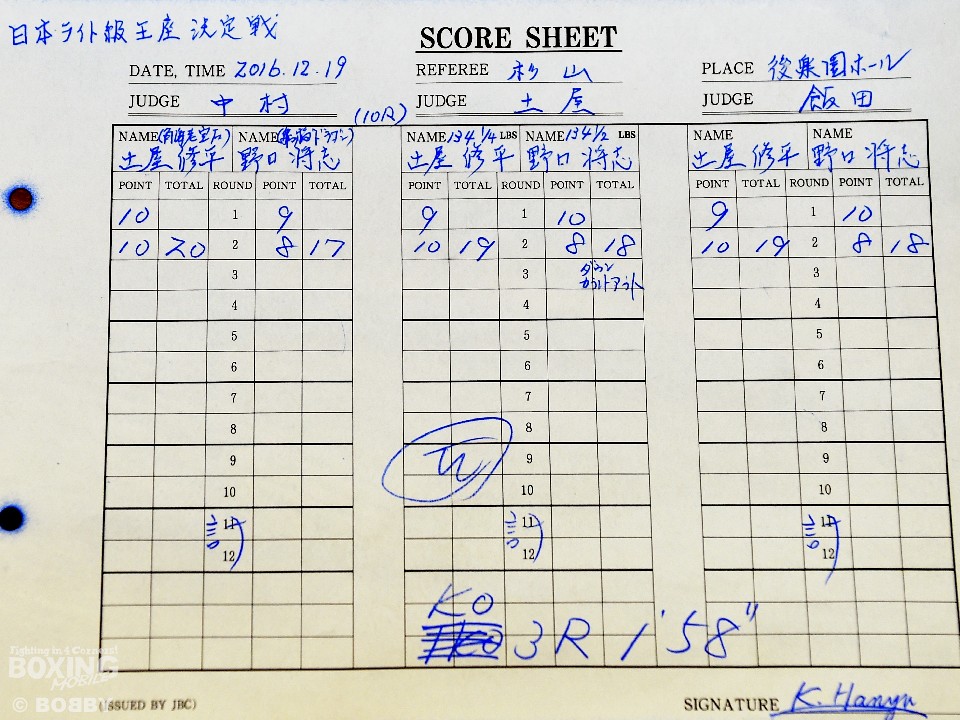 日本ライト級王座決定戦
SCORE SHEET
DATE, TIME 2016.12.19 REFEREE 杉山 PLACE 後楽園ホール
JUDGE 中村 (10R) JUDGE 土屋 JUDGE 飯田
NAME (角海老宝石) NAME NAME 134 1/4 LBS NAME 134 1/2 LBS NAME NAME
土屋 修平 野口 将志 土屋 修平 野口 将志 土屋 修平 野口 将志
POINT TOTAL ROUND POINT TOTAL POINT TOTAL ROUND POINT TOTAL POINT TOTAL ROUND POINT TOTAL
10 1 9 9 1 10 9 1 10
10 20 2 8 17 10 19 2 8 18 10 19 2 8 18
3 3 ダウン 3
カウントアウト
4 4 4
5 5 5
6 6 6
7 7 7
8 8 8
9 W 9 9
10 10 10
11 11 11
12 12 12
KO
TKO 3R 1'58"
Fighting in 4 Corners!
BOXING
MOBILE
© BOBBY
(ISSUED BY JBC) SIGNATURE K. Hanyu